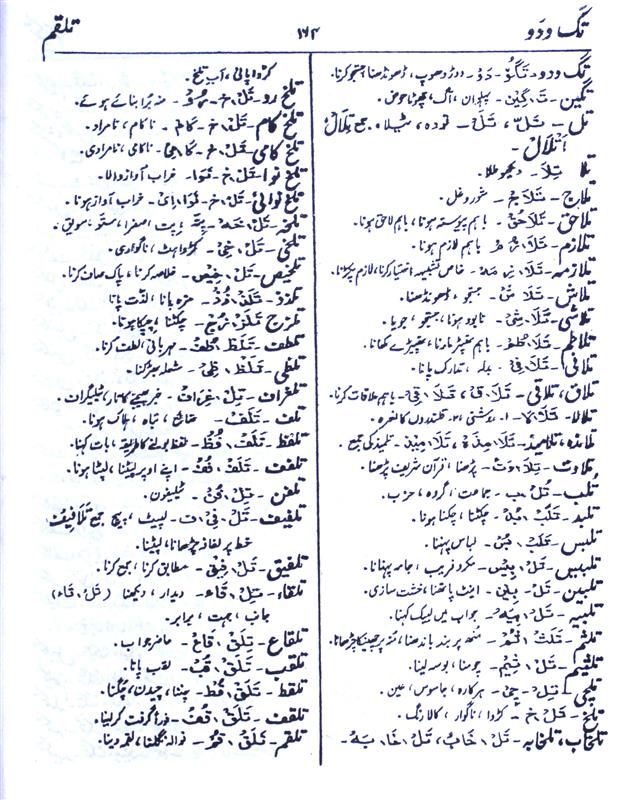 تگ و دَو ۱۶۴ تلقم
تگ و دو۔ تَگَوْ۔ دَوْ۔ دوڑ دھوپ، ڈھونڈھنا جستجو کرنا۔
تگین۔ تَ، گِیْن۔ پہلوان، آگ، چھوٹا حوض۔
تل۔ تَلّ، تَلْ۔ تودہ، ٹیلا۔ جمع تِلَالْ
اَتْلَالْ۔
تلا۔ تِلَا۔ دیکھو طلا۔
تلاج۔ تَلَاجْ۔ شور و غل۔
تلاحق۔ تَلَاحُقْ۔ باہم پیوستہ ہونا، باہم لاحق ہونا۔
تلازم۔ تَلَازُمْ۔ باہم لازم ہونا۔
تلازمہ۔ تَلَا، زِ، مَہْ۔ خاص کشبیہ اختیار کرنا، لازم پکڑنا۔
تلاش۔ تَلَا شْ۔ جستجو، ڈھونڈھنا۔
تلاشی۔ تَلَا، شِیْ۔ نابود ہونا، جستجو، جویا۔
تلاطم۔ تَلَا، طُمْ۔ باہم تھپیڑ مارنا، تھپیڑے کھانا۔
تلافی۔ تَلَا، فِیْ۔ بدلہ، تدارک پانا۔
تلاق، تلاقی۔ تَلَا، قْ، تَلَا، قِیْ۔ باہم ملاقات کرنا۔
تلالا۔ تَلَالَا۔ ۱۔ روشنی، ۲۔ قلندروں کا نعرہ۔
تلامذہ، تلامیذ۔ تَلَا، مِذَہْ، تَلَا، مِیْذْ۔ تلمیذ کی جمع۔
تلاوت۔ تِلَا، وَتْ۔ پڑھنا، قرآن شریف پڑھنا۔
تُلب۔ تُلْ، ب۔ جماعت، گروہ، حزب۔
تلبد۔ تَلَبْ، بُدْ۔ چکٹنا، چکنا ہونا۔
تلبس۔ تَلَبْ، بُسْ۔ لباس پہننا۔
تلبیس۔ تَلْ، بِیْسْ۔ مکر و فریب، جامہ پہنانا۔
تلبین۔ تَلْ، بِیْن۔ اینٹ پاتھنا، خشت سازی۔
تلبیہ۔ تَلْ، بِیَہْ۔ جواب میں لبیک کہنا۔
تلثم۔ تَلَثْ، ثُمْ۔ منھ پر بند باندھنا، منہ پر چھینکا چڑھانا۔
تلثیم۔ تَلْ، ثِیْمْ۔ چومنا، بوسہ لینا۔
تلچی۔ تِلْ، چِیْ۔ ہرکارہ، جاسوس، عین۔
تلخ۔ تَلْ، خْ۔ کڑوا، ناگوار، کالا رنگ۔
تلخاب، تلخابہ۔ تَلْ، خَابْ، تَلْ، خَا، بَہْ۔
کڑوا پانی، آبِ تلخ۔
تلخ رو۔ تَلْ، خ۔ رُوْ۔ منہ بُرا بنائے ہوئے۔
تلخ کام۔ تَلْ، خ۔ کَامْ۔ ناکام، نامراد۔
تلخ کامی۔ تَلْ، خ۔ کَا، مِیْ۔ ناکامی، نامرادی۔
تلخ نوا۔ تَلْ، خ، نَوَا۔ خراب آواز والا۔
تلخ نوائی۔ تَلْ، خ، نَوَا، اِیْ۔ خراب آواز ہونا۔
تلخہ۔ تَلْ، خَہْ۔ پِتّہ، پِت، صفرا، ستّو، سویق۔
تلخی۔ تَلْ، خِیْ۔ کڑواہٹ، ناگواری۔
تلخیص۔ تَلْ، خِیْص۔ خلاصہ کرنا، پاک صاف کرنا۔
تلذذ۔ تَلَذْ، ذُذْ۔ مزہ پانا، لذّت پانا
تلزج۔ تَلَزْ، زُجْ۔ چکٹنا، چپکنا ہونا۔
تلطف۔ تَلَطْ، طُفْ۔ مہربانی، لطف کرنا۔
تلظی۔ تَلَظْ، ظِیْ۔ شعلہ بھڑکنا۔
تلغراف۔ تِلْ، غِرَافْ۔ خبر بھیجنے کا تار، ٹیلیگراف۔
تلف۔ تَلَفْ۔ ضائع، تباہ، ہلاک ہونا۔
تلفظ۔ تَلَفْ، فُظْ۔ لفظ بولنے کا طریقہ، بات کہنا۔
تلفف۔ تَلَفْ، فُفْ۔ اپنے اوپر لپیٹنا، لپٹا ہونا۔
تلفن۔ تِلْ، فُنْ۔ ٹیلیفون۔
تلفیف۔ تَلْ، فِیْ، ف۔ لپیٹ، پیچ، جمع تَلَافِیْف
خط پر لفافہ چڑھانا، لپٹنا۔
تلفیق۔ تَلْ، فِیْقْ۔ مطابق کرنا، جمع کرنا۔
تلقاء۔ تِلْ، قَاء۔ دیدار، دیکھنا (تَلْ، قَاء)
جانب، جہت، برابر۔
تلقاع۔ تِلِقْ، قَاعْ۔ حاضر جواب۔
تلقب۔ تَلَقْ، قُبْ۔ لقب پانا۔
تلقط۔ تَلَقْ، قُطْ۔ چننا، چیدن، چگنا۔
تلقف۔ تَلَقْ، قُفْ۔ فوراً گرفت کر لینا۔
تلقم۔ تَلَقْ، قُمْ۔ نوالہ نگلنا، لقمہ دینا۔